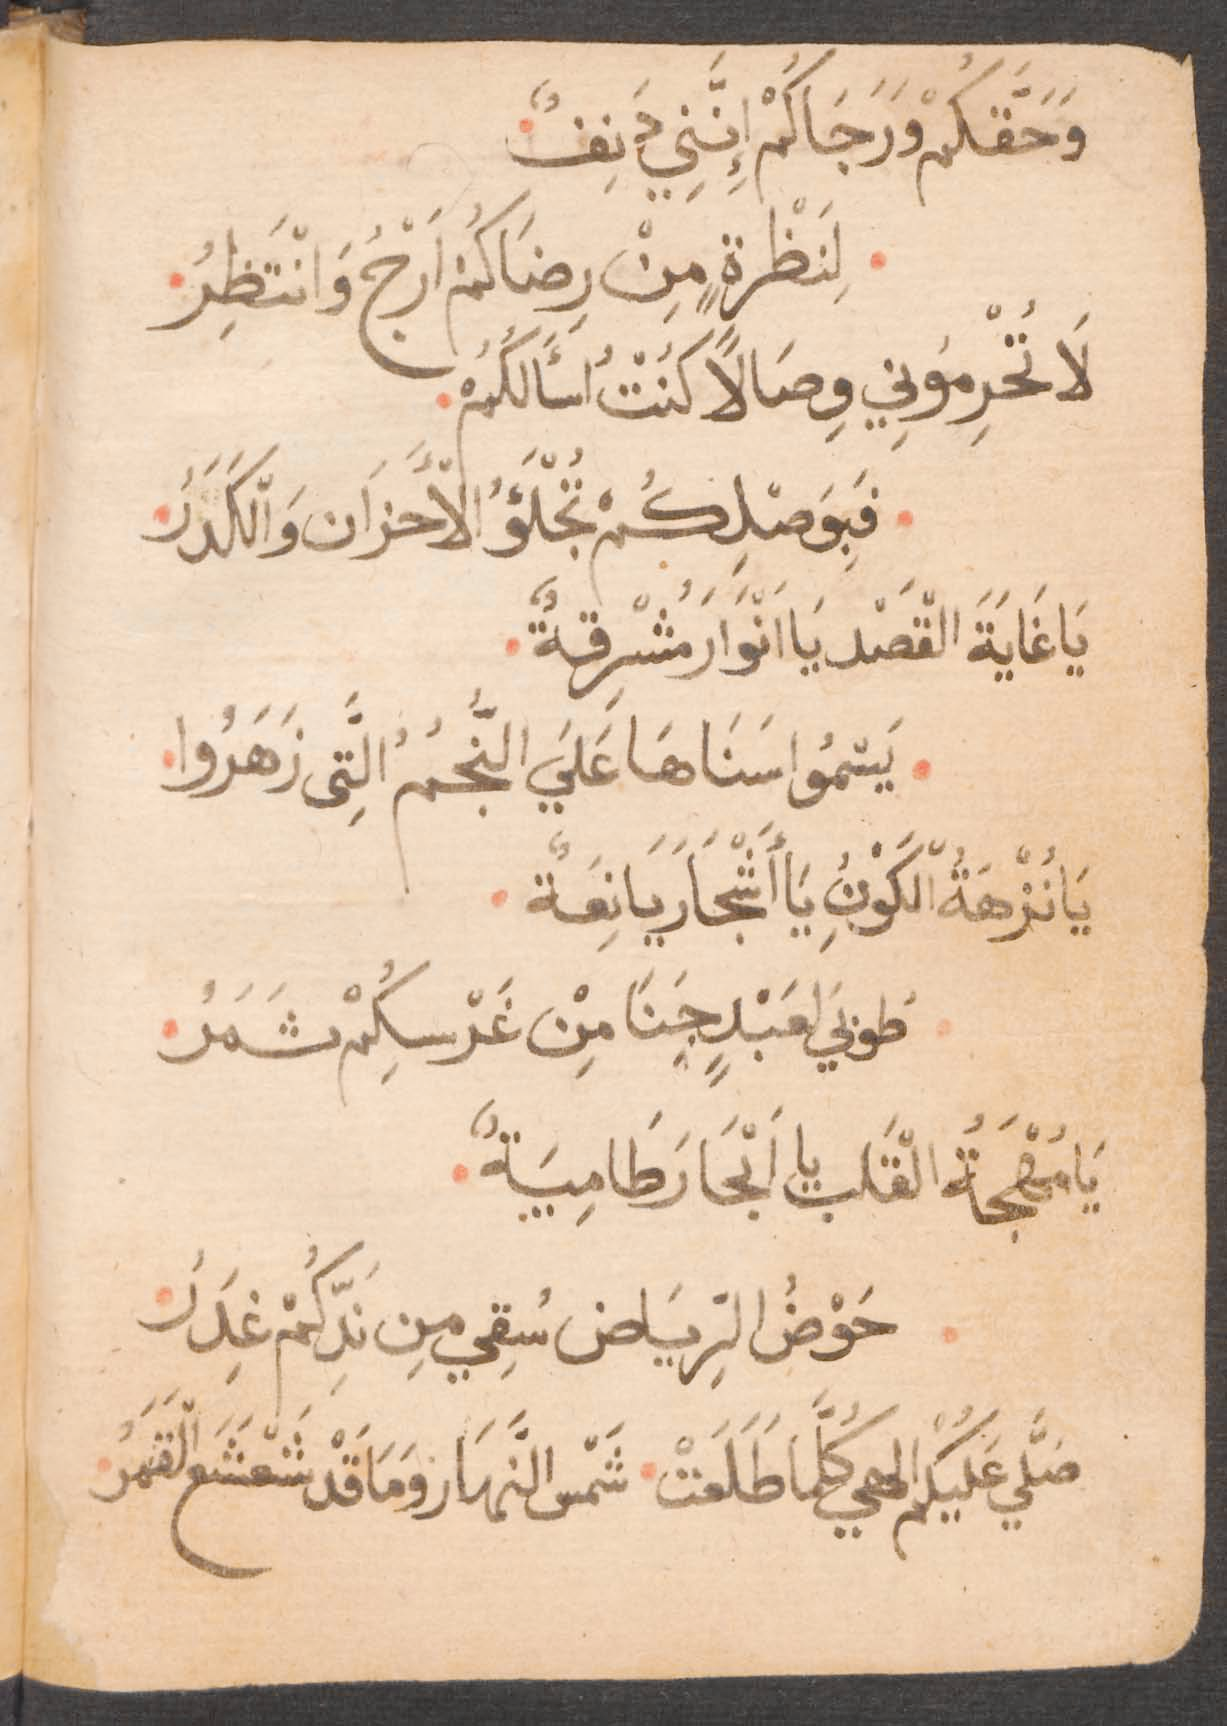 وَحَقِّكُمْ وَرَجَاكُمْ إِنَّنِي دَنِفٌ
لِنَظْرةٍ مِنْ رِضَاكُمْ اَرْجُ وَانْتَظِرُ
لَا تُحْرِمُونِي وِصَالًا كُنْتُ اسْأَلُكُمْ
فَبِوَصْلِكُمْ تُجْلَؤُ الْأَحزَان وَالْكَدَرُ
يَا غَايَةَ الْقَصْد يَا اَنْوَارَ مُشْرِقةٌ
يَسْمُوا سَنَاهَا عَلَي النُّجُمُ الَّتِى زَهَرُوا
يَا نُزْهَةُ الْكَوْنِ يَا أَشْجَارَ يَانِعَةٌ
طوبَي لعَبْدٍ جَنَا مِنْ غَرْسِكُمْ ثَمَرُ
يَا مُهْجَةُ الْقَلب يا اَبْحَارَ طَامِيَةٌ
حَوْضُ الرِّيَاض سُقِي مِن نَدِّكُمْ غِدَرُ
صَلَّي عَلَيْكُم الهي كُلَّمَا طَلَعَتْ شَمْس النَّهَار وَمَا قَدْ شَعْشَع الْقَمَرُ